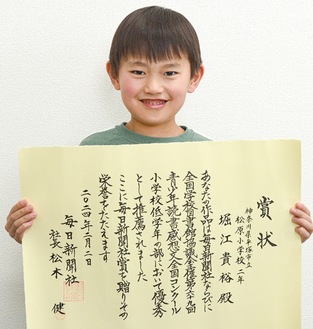 賞状
神奈川県平塚市立
松原小学校 二年
堀江貴裕 殿
あなたの作品は毎日新聞社ならびに
全国学校図書館協議会主催第六十九回
青少年読書感想文全国コンクール
小学校低学年の部において優秀
として推薦されました
ここに毎日新聞社賞を贈りその
栄誉をたたえます
二〇二四年二月二日
毎日新聞社
社長 松木 健